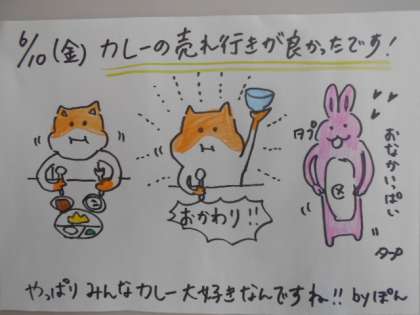 6/10(金) カレーの売れ行きが良かったです!
タプ
おなかいっぱい
おかわり!!
タプ
やっぱり みんなカレー大好きなんですね!! byぽん